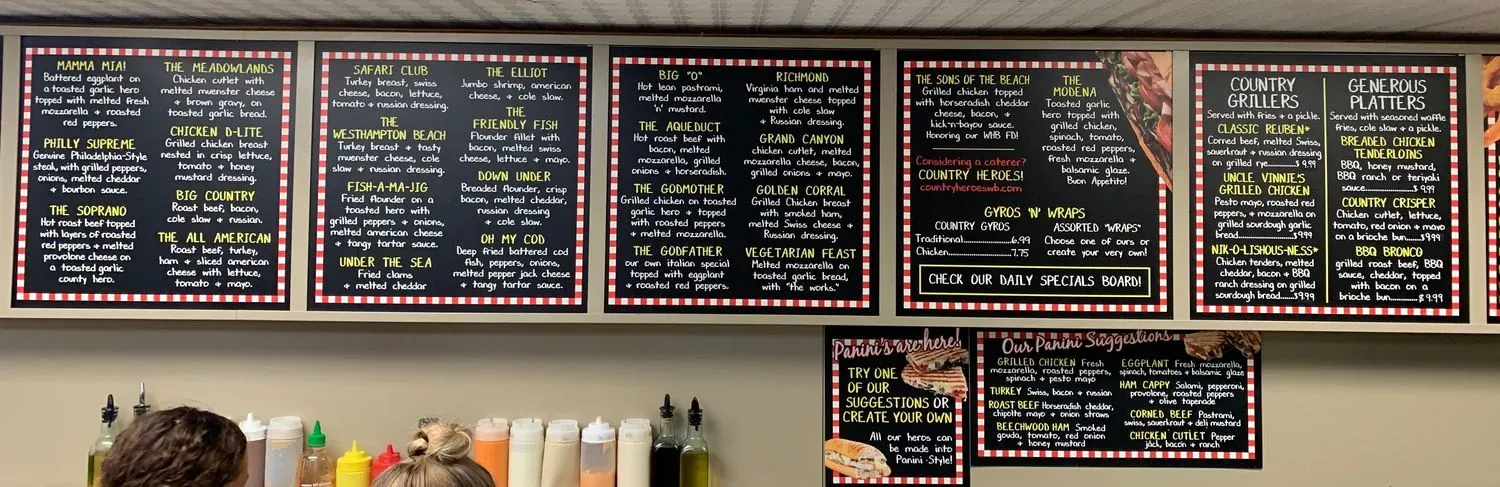 MAMMA MIA!
Battered eggplant on
a toasted garlic hero
topped with melted fresh
mozzarella + roasted
red peppers.
PHILLY SUPREME
Genuine Philadelphia-Style
steak, with grilled peppers,
onions, melted cheddar
+ bourbon sauce.
THE SOPRANO
Hot roast beef topped
with layers of roasted
red peppers + melted
provolone cheese on
a toasted garlic
county hero.
THE MEADOWLANDS
Chicken cutlet with
melted muenster cheese
+ brown gravy, on
toasted garlic bread.
CHICKEN D-LITE
Grilled chicken breast
nested in crisp lettuce,
tomato + honey
mustard dressing.
BIG COUNTRY
Roast beef, bacon,
cole slaw + russian.
THE ALL AMERICAN
Roast beef, turkey,
ham + sliced american
cheese with lettuce,
tomato + mayo.
SAFARI CLUB
Turkey breast, swiss
cheese, bacon, lettuce,
tomato + russian dressing.
THE
WESTHAMPTON BEACH
Turkey breast + tasty
muenster cheese, cole
slaw + russian dressing.
FISH-A-MA-JIG
Fried flounder on a
toasted hero with
grilled peppers + onions,
melted american cheese
+ tangy tartar sauce.
UNDER THE SEA
Fried clams
+ melted cheddar
THE ELLIOT
Jumbo shrimp, american
cheese, + cole slaw.
THE
FRIENDLY FISH
Flounder fillet with
bacon, melted swiss
cheese, lettuce + mayo.
DOWN UNDER
Breaded flounder, crisp
bacon, melted cheddar,
russian dressing
+ cole slaw.
OH MY COD
Deep fried battered cod
fish, peppers, onions,
melted pepper jack cheese
+ tangy tartar sauce.
BIG "O"
Hot lean pastrami,
melted mozzarella
'n' mustard.
THE AQUEDUCT
Hot roast beef with
bacon, melted
mozzarella, grilled
onions + horseradish.
THE GODMOTHER
Grilled chicken on toasted
garlic hero + topped
with roasted peppers
+ melted mozzarella.
THE GODFATHER
our own italian special
topped with eggplant
+ roasted red peppers.
RICHMOND
Virginia ham and melted
muenster cheese topped
with cole slaw
+ Russian dressing.
GRAND CANYON
chicken cutlet, melted
mozzarella cheese, bacon,
grilled onions + mayo.
GOLDEN CORRAL
Grilled Chicken breast
with smoked ham,
melted Swiss cheese +
Russian dressing.
VEGETARIAN FEAST
Melted mozzarella on
toasted garlic bread,
with "the works."
THE SONS OF THE BEACH
Grilled chicken topped
with horseradish cheddar
cheese, bacon, +
kick'n-bayou sauce.
Honoring our WHB FD!
Considering a caterer?
COUNTRY HEROES!
countryheroeswb.com
THE
MODENA
Toasted garlic
hero topped with
grilled chicken,
spinach, tomato,
roasted red peppers,
fresh mozzarella +
balsamic glaze.
Buon Appetito!
GYROS 'N' WRAPS
COUNTRY GYROS
Traditional......6.99
Chicken......7.75
ASSORTED "WRAPS"
Choose one of ours or
create your very own!
CHECK OUR DAILY SPECIALS BOARD!
COUNTRY
GRILLERS
Served with fries + a pickle.
CLASSIC REUBEN*
Corned beef, melted Swiss,
sauerkraut + russian dressing
on grilled rye......$ 9.99
UNCLE VINNIE'S
GRILLED CHICKEN
Pesto mayo, roasted red
peppers, + mozzarella on
grilled sourdough garlic
bread......$9.99
NIK-O-LISHOUS-NESS*
Chicken tenders, melted
cheddar, bacon + BBQ
ranch dressing on grilled
sourdough bread......$9.99
GENEROUS
PLATTERS
Served with seasoned waffle
fries, cole slaw + a pickle.
BREADED CHICKEN
TENDERLOINS
BBQ, honey mustard,
BBQ ranch or teriyaki
sauce......$ 9.99
COUNTRY CRISPER
Chicken cutlet, lettuce,
tomato, red onion + mayo
on a brioche bun......$9.99
BBQ BRONCO
grilled roast beef, BBQ
sauce, cheddar, topped
with bacon on a
brioche bun......$ 9.99
Panini's are here!
TRY ONE
OF OUR
SUGGESTIONS OR
CREATE YOUR OWN
All our heros can
be made into
Panini-Style!
Our Panini Suggestions
GRILLED CHICKEN Fresh
mozzarella, roasted peppers,
spinach + pesto mayo
TURKEY Swiss, bacon + russian
ROAST BEEF Horseradish cheddar,
chipotle mayo + onion straws
BEECHWOOD HAM Smoked
gouda, tomato, red onion
+ honey mustard
EGGPLANT Fresh mozzarella,
spinach, tomatoes + balsamic glaze
HAM CAPPY Salami, pepperoni,
provolone, roasted peppers
+ olive tapenade
CORNED BEEF Pastrami,
swiss, sauerkraut + deli mustard
CHICKEN CUTLET Pepper
jack, bacon + ranch